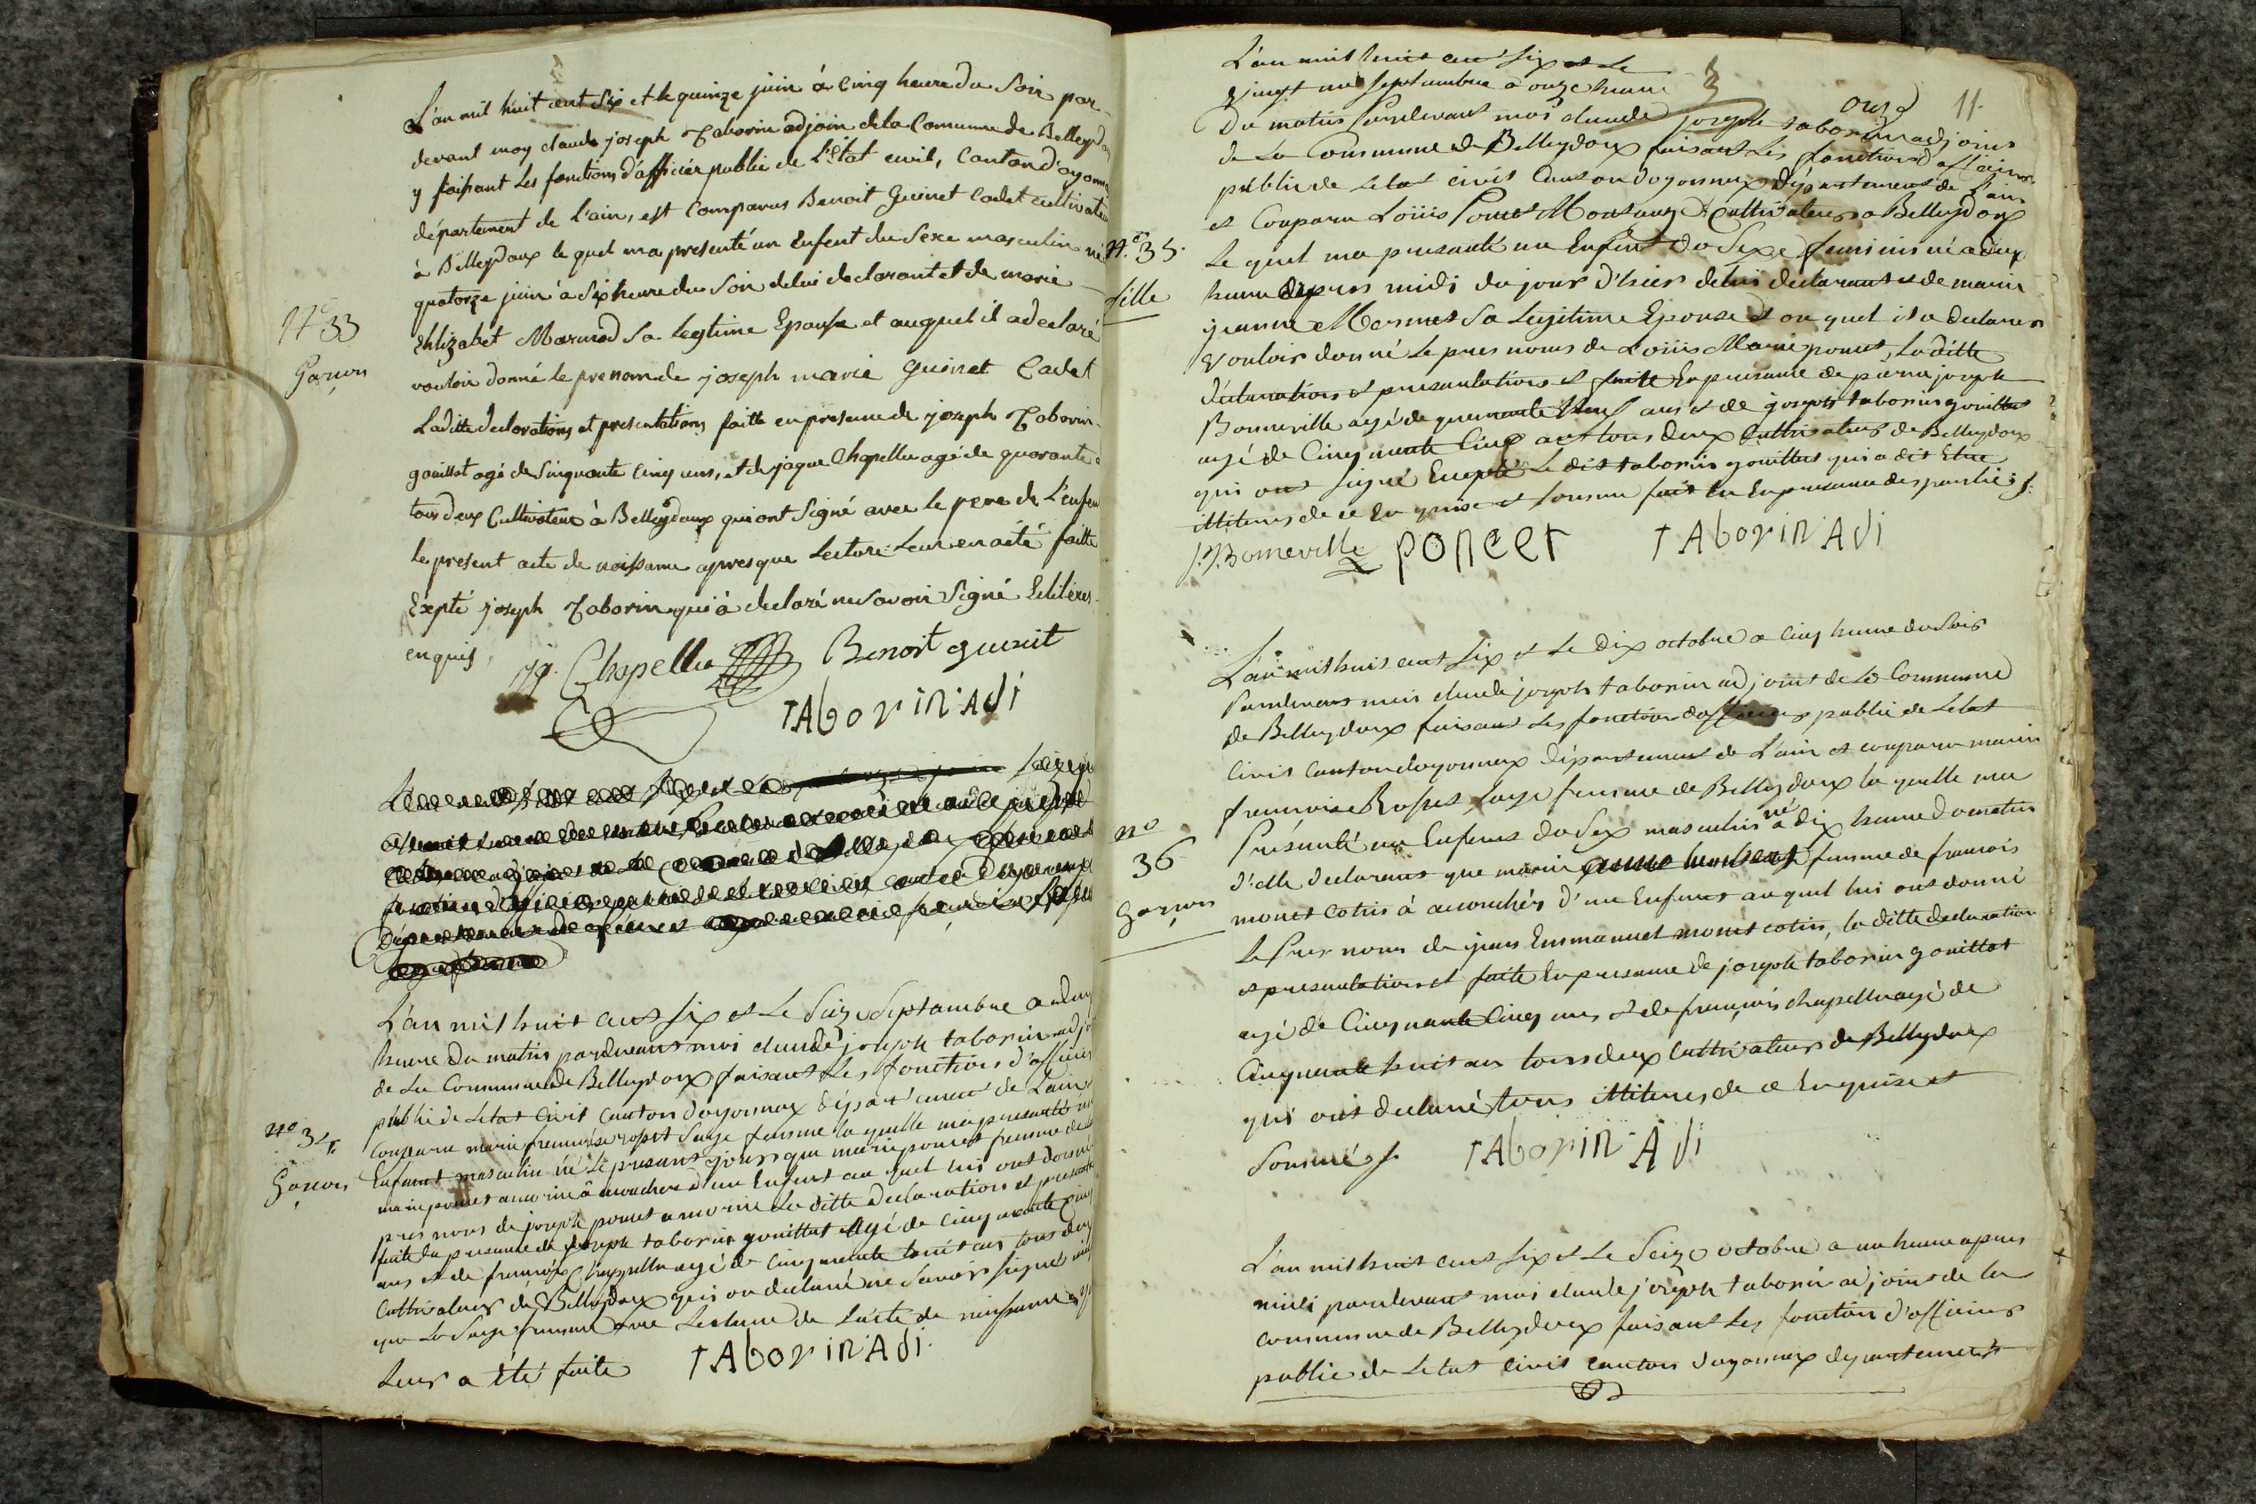 L'an mil huit cent Six et le quinze juin à Cinq heure du Soir par-
devant moy claude joseph Taborin adjoin de la Comunne de Belleydoux
y faisant les fonctions d'afficiér public de L'Etat civil, Canton d'oyonnax
département de L'ain, est Comparus Benoit Guinet Cadet cultivateur
à Belleydoux le quel ma presenté un Enfent du Sexe masculin né
quatorze juin à Six heure du Soir de lui declarant et de marie
N° 33
Garcon
Ehlizabet Marmod Sa Legtime Epouse et auquel il a declaré
vouloir donné le pre nom de joseph marie Guinet Cadet
Laditte declarations et presentations faitte en presence de joseph Taborin
gouillot agé de Sinquante Cinq ans, et de jaque Chapellu agé de quarante
tous deux Cultivateur à Belleydoux qui ont Signé avec le pere de L'enfen
le present acte de naissance apres que Lecture Leur en a été faitte
Expté joseph Taborin qui à declaré ne Savoir Signé
enquis,
jq. Chapellu Benoit guinet
TAborin Adi
L'an mil huit cent Six et Le Seize Septambre a
heure du matin pardevant moi claude joseph taborin adjo
de La Commune de Belleydoux faisant Les fonctions d'officier
public de Letat Civil canton doyonnax département de Lain
N° 34
Garcon
Comparu marie francoise rosset Sage femme la quelle ma presenté un
Enfant masculin né Le present jour que marie poncet femme de
marie poncet a accouchere d'un Enfent au quel lui ont donné
pres nom de joseph poncet La ditte declaration et presentat
faite En presance de joseph taborin gouillat Agé de Cinquante Cinq
ans et de francois Chappellu agé de Cinquante huit ans tous deux
Cultivateurs de Belleydoux qui on déclaré ne Savoir Signé
que La Sage femme Lecture de Lacte de naissance
Leur a été faite TAborin Adi
L'an mil huit cent Six et Le
Vingt un Septambre à onze heure
onze 11
Du matin Pardevant moi claude joseph taborin adjoins
de La Commune de Belleydoux faisant Les fonctions d'officier
public de Letat civil Canton doyonnax Département de Lain
et Comparu Loüis Poncet Cultivateur a Belleydoux
N° 35.
fille
Le quel ma presanté un Enfent du Sexe feminin né a deux
heure apres midi du jour d'hier de lui declarant et de marie
jeanne Mermet Sa Legitime Epouse et au quel il a declarer
Vouloir donné Le pres noms de Loüis Marie poncet, Laditte
déclaration et presantation et faite En presance de pierre joseph
Bonneville agé de quarante neuf ans et de joseph taborin gouillat
agé de Cinquante Cinq ans tous deux Cultivateurs de Belleydoux
qui ont Signé Excepté Le dit taborin gouillat qui a dit Etre
illiteres de ce En quise et Somme fait En presance des parties
j.j. Boneville Poncet TAborin Adi
L'an mil huit cent Six et Le Dix octobre a Cinq heure du Soir
Pardevant moi claude joseph taborin adjoint de La Commune
de Belleydoux faisant Les fonction dofficier public de Letat
Civil canton doyonnax Département de L'ain et comparu marie
francoise Rosset Sage femme de Belleydoux la quelle ma
n°
36
Garcon
Présenté un Enfent du Sex masculin né a dix heure du matin
d'elle declarant que marie femme de francois
monet cotin à accouchér d'un Enfent au quel lui ont donné
Le Pres nom de jean Emmanuel monet cotin, la ditte declaration
et presantation et faite En presance de joseph taborin gouillat
agé de Cinquante Cinq ans et de françois chapellu agé de
Cinquante huit an tous deux Cultivateurs de Belleydoux
qui ont declaré tous illiteres de ce Enquise et
Sommé TAborin Adi
L'an mil huit cent Six et Le Seize octobre a un heure apres
midi pardevant moi claude joseph taborin adjoins de la
commune de Belleydoux faisant Les fonction d'officiers
public de Letat Civil canton doyonnax departement